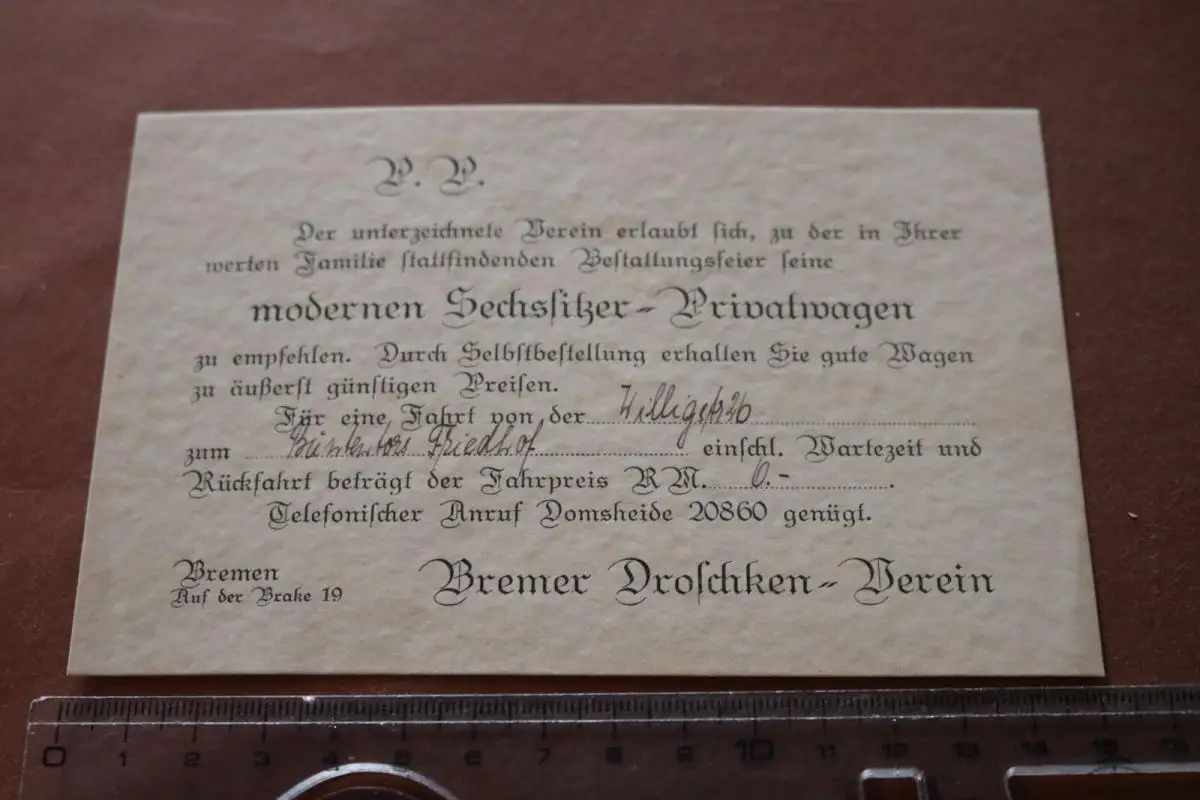 P. P.
Der unterzeichnete Verein erlaubt sich, zu der in Ihrer
werten Familie stattfindenden Bestattungsfeier seine
modernen Sechssitzer-Privatwagen
zu empfehlen. Durch Selbstbestellung erhalten Sie gute Wagen
zu äußerst günstigen Preisen.
Für eine Fahrt von der Willigstr 26
zum Buntentors Friedhof einschl. Wartezeit und
Rückfahrt beträgt der Fahrpreis RM. 6.-.
Telefonischer Anruf Domsheide 20860 genügt.
Bremen
Auf der Brake 19
Bremer Droschken-Verein
0 1 2 3 4 5 6 7 8 9 10 11 12 13 14 15 16